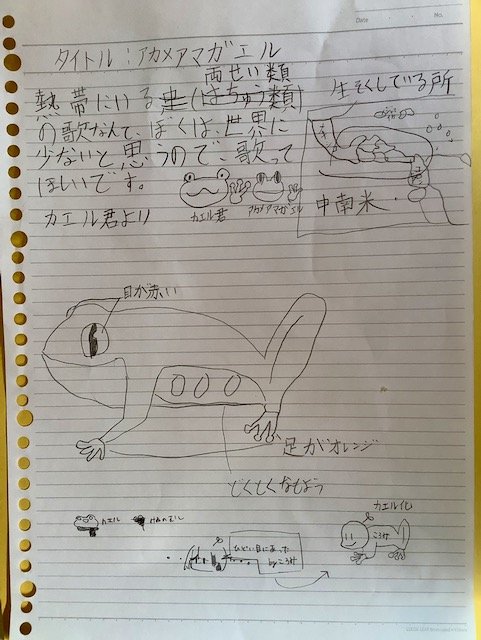 タイトル:アカメアマガエル
両せい類
熱帯にいる(はちゅう類)
の歌なんて、ぼくは、世界に
少ないと思うので、歌って
ほしいです。
カエル君より
カエル君
アカメアマガエル
生そくしている所
中南米
目が赤い
足がオレンジ
どくしくなもよう
カエル
カエル化
ころ助
ひどい目にあった
byころ助